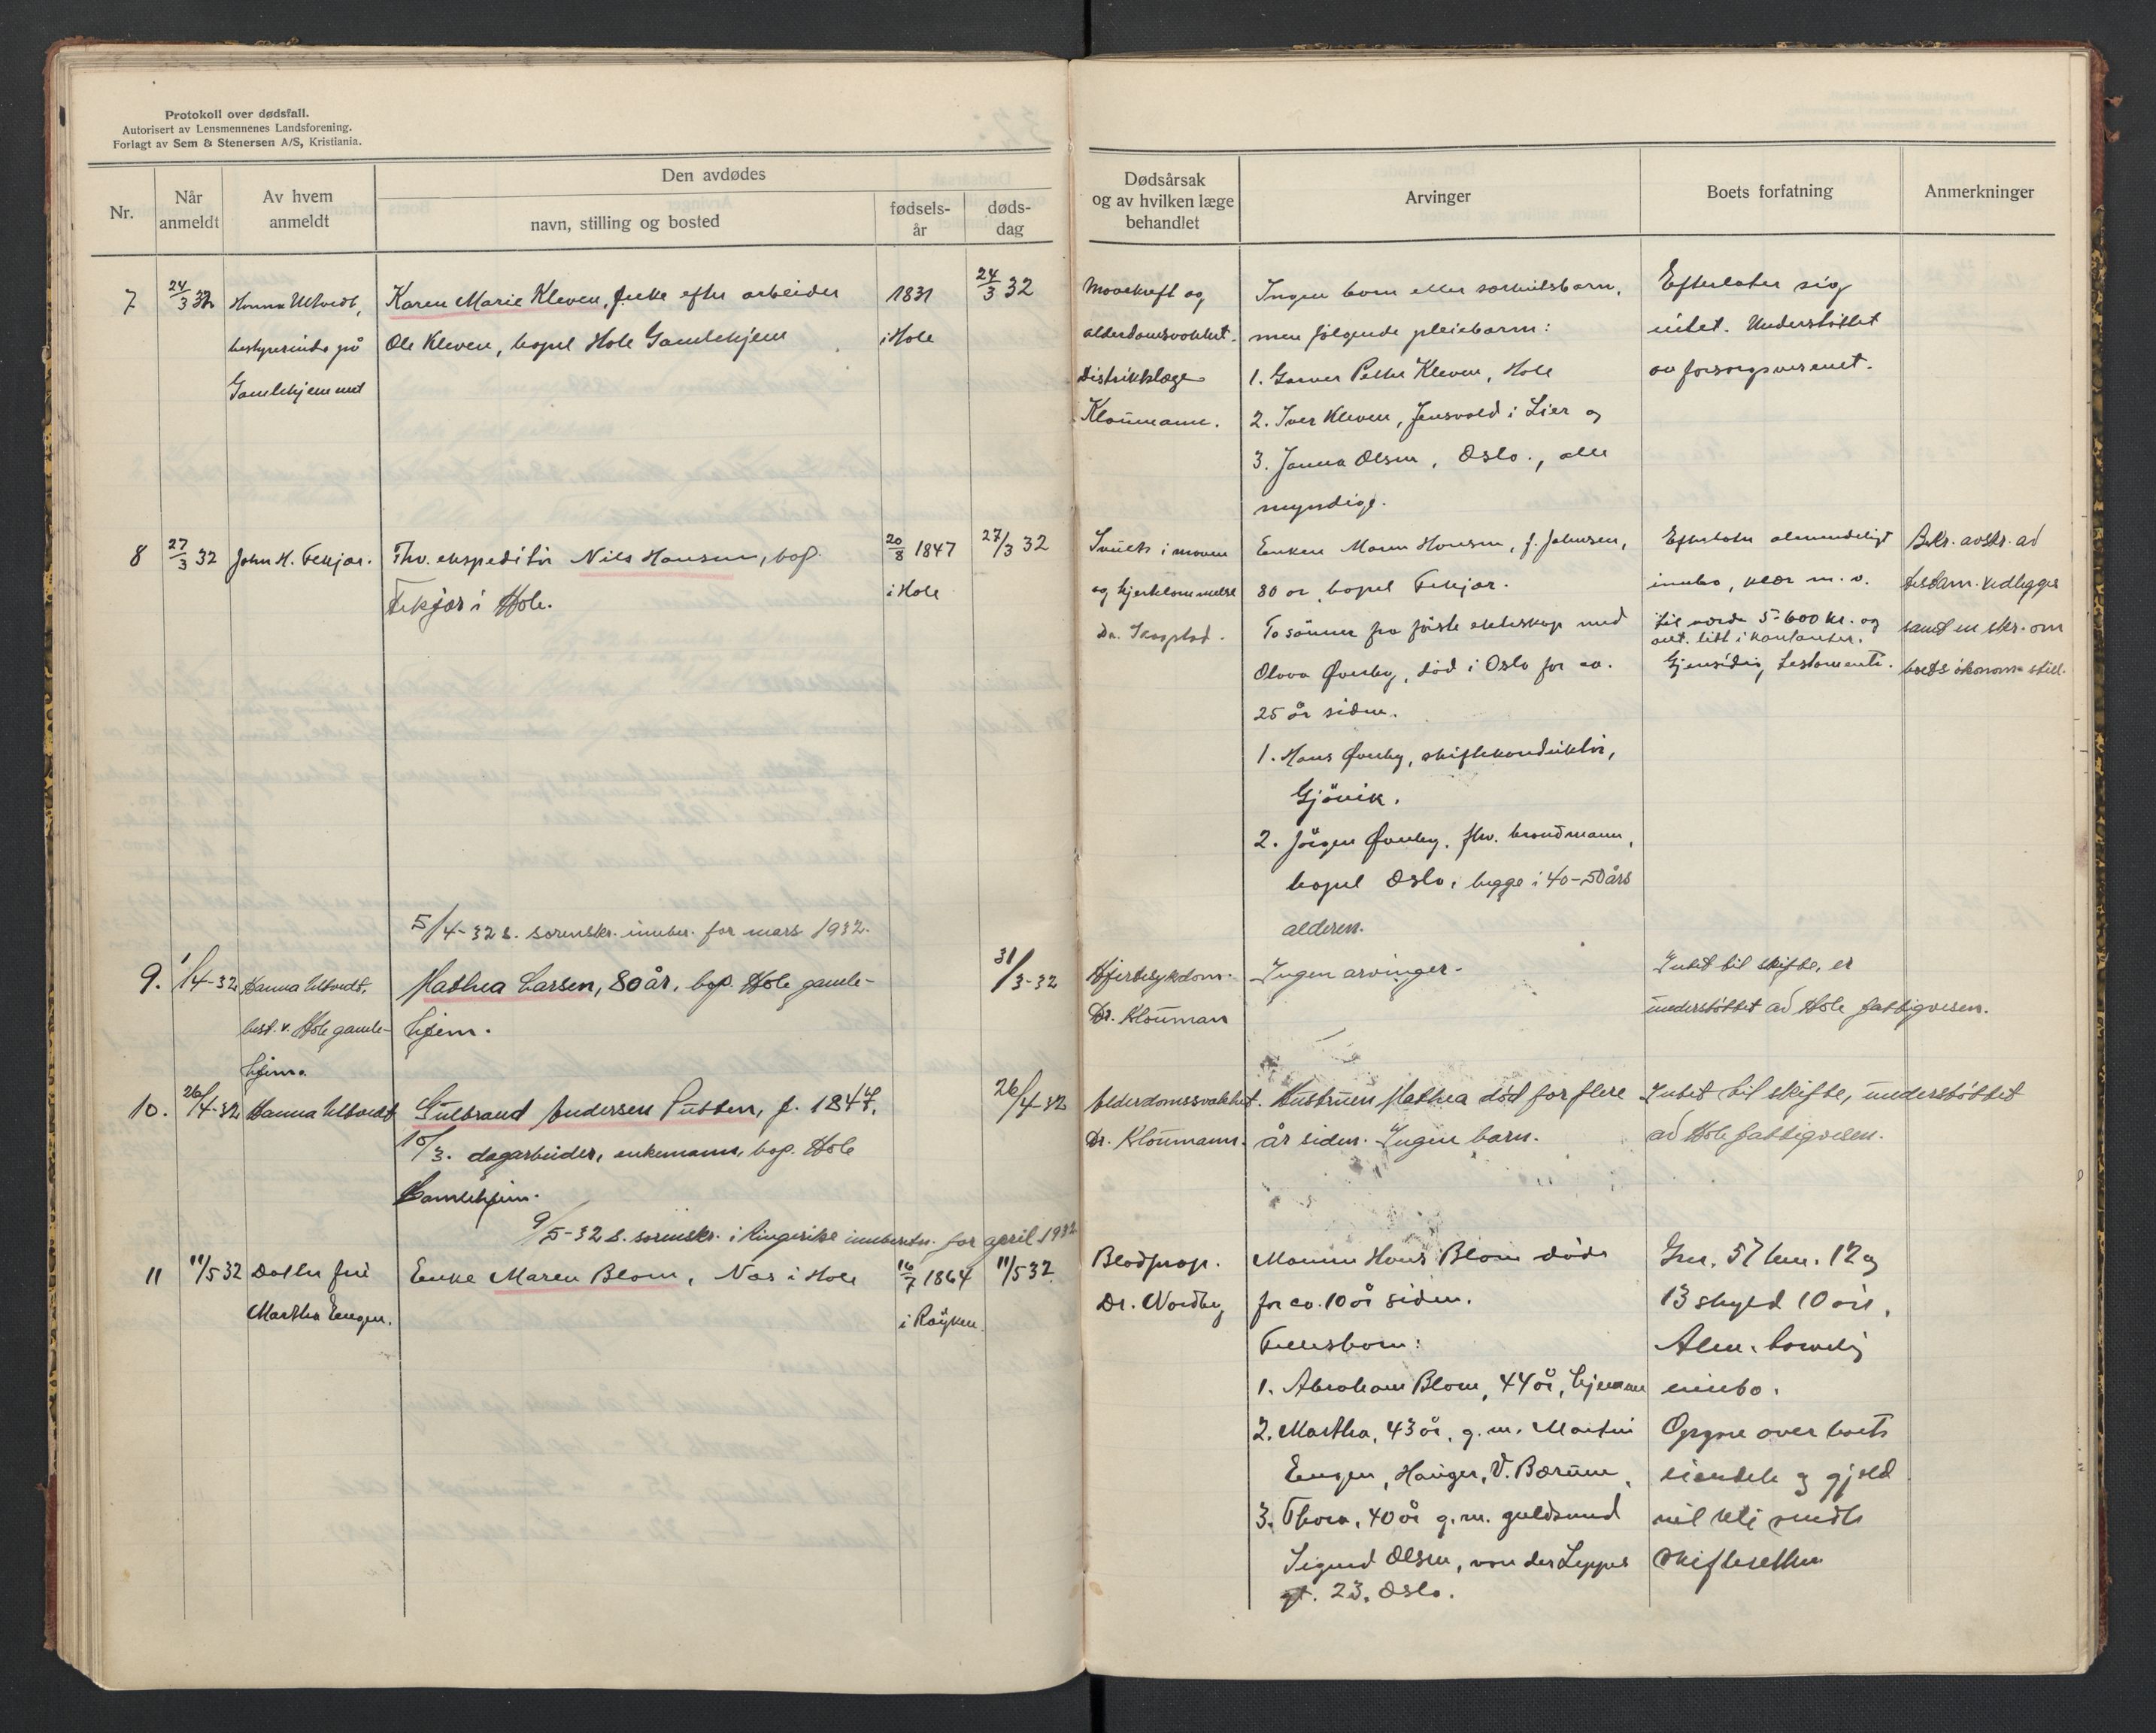 Protokoll over dødsfall.
Autorisert av Lensmennenes Landsforening.
Forlagt av Sem & Stenersen A/S, Kristiania.
Nr.
Når anmeldt
Av hvem anmeldt
Den avdødes
navn, stilling og bosted
fødsels-år
døds-dag
Dødsårsak og av hvilken læge behandlet
Arvinger
Boets forfatning
Anmerkninger
7
24/3 32
Hanna Ultvedt,
bestyrerinde på
Gamlehjemmet
Karen Marie Kleven, enke efter arbeider
Ole Kleven, bopel Hole Gamlehjem
1831
i Hole
24/3 32
Mavekreft og
alderdomsvakhet.
Distriktslæge
Kloumann.
Ingen barn eller særkulsbarn,
men følgende pleiebarn:
1. Garver Petter Kleven, Hole
2. Iver Kleven, Jensvold i Lier og
3. Janna Olsen, Oslo., alle
myndige.
Efterlater sig
intet. Understøttet
av forsorgsvesenet.
8
27/3 32
John H. Fekjær.
Fhv. ekspeditör Nils Hansen, bop.
Fekjær i Hole.
20/8 1847
i Hole
27/3 32
og hjertelammelse
Dr. Skogstad.
Enken Maren Hansen, f. Johnsen,
80 år, bopel Fekjær.
To sönner fra förste ekteskap med
Olava Øverby, död i Oslo for ca.
25 år siden.
1. Hans Øverby, skiftekonduktör,
Gjövik.
2. Jörgen Øverby, fhv. brandmann,
bopel Oslo, begge i 40-50 års
alderen.
Efterlater almindeligt
innbo, klær m.v.
til værdi 5-600 kr. og
ant. litt i kontanter.
Gjensidig testamente.
Bekr. avskr. av
testam. vedlegges
samt en skr. om
boets økonom. still.
5/4-32 s. sorenskr. innber. for mars 1932.
9.
1/4-32
Hanna Ultvedt,
best. v. Hole gamle-
hjem.
Mathea Larsen, 80 år, bop. Hole gamle-
hjem.
31/3-32
Hjertesykdom.
Dr. Klouman
Ingen arvinger.
Intet til skifte, er
understöttet av Hole fattigvesen.
10.
26/4-32
Hanna Ultvedt
Gulbrand Andersen Putten, f. 1844,
10/3. dagarbeider, enkemann, bop. Hole
Gamlehjem.
26/4-32
Alderdomssvakhet.
Dr. Kloumann.
Hustruen Mathea död for flere
år siden. Ingen barn.
Intet til skifte, understöttet
av Hole fattigvesen.
9/5-32 s. sorenskr. i Ringerike innberetn. for april 1932
11
11/5 32
Datter fru
Martha Engen.
Enke Maren Blom, Nes i Hole
16/7 1864
i Röyken.
11/5 32
Blodprop.
Dr. Nordby
Mannen Hans Blom döde
for ca. 10 år siden.
Fellesbarn:
1. Abraham Blom, 44 år, hjemme
2. Martha, 43 år, g.m. Martin
Engen, Hauger, V. Bærum,
3. Thora, 40 år g.m. guldsmed
Sigurd Olsen, von der Lippes
gt. 23, Oslo.
Gnr. 57 bnr. 12 og
13 skyld 10 öre.
Alm. tarvelig
innbo.
Opgave over boets
eiendele og gjeld
vil bli sendt
skifteretten